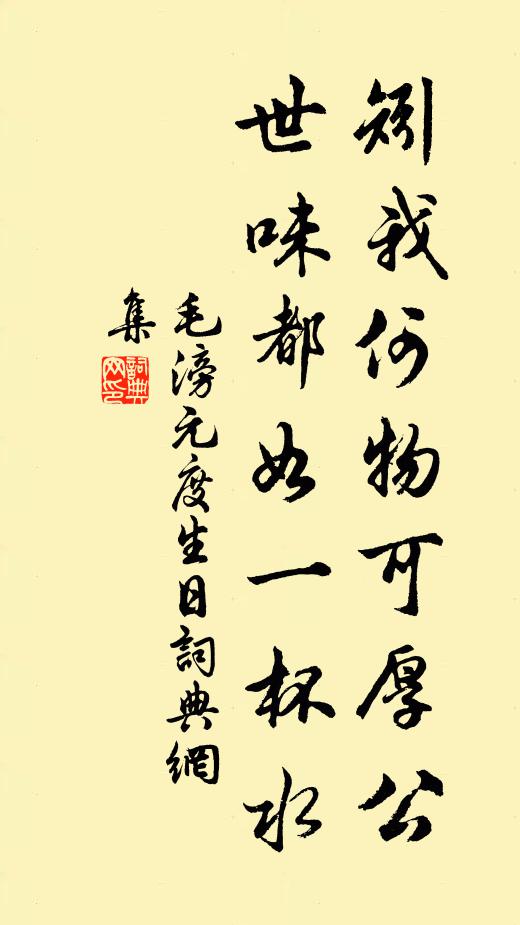 矧我何物可厚公
世味都如一杯水
毛滂元度生日詞典網
集
詞典
网印